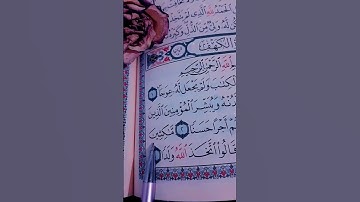 الَّذِي لَمْ
وَلِيٌّ مِنَ الذُّلِّ وَكَبِّرْهُ
الكَهْفِ
اللَّهِ الرَّحْمَٰنِ الرَّحِيمِ
الْكِتَابَ وَلَمْ يَجْعَل لَّهُ عِوَجَا ١
وَيُبَشِّرَ الْمُؤْمِنِينَ الَّذِينَ
أَجْرًا حَسَنًا ٢ مَّاكِثِينَ
قَالُوا اتَّخَذَ اللَّهُ وَلَدًا ٤